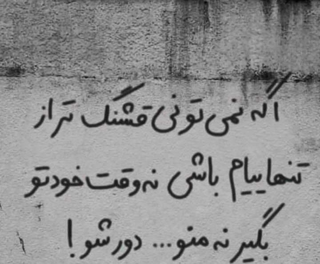 اگه نمی تونی قشنگ تر از
تنهاییام باشی نه وقت خودتو
بگیر نه منو... دور شو !